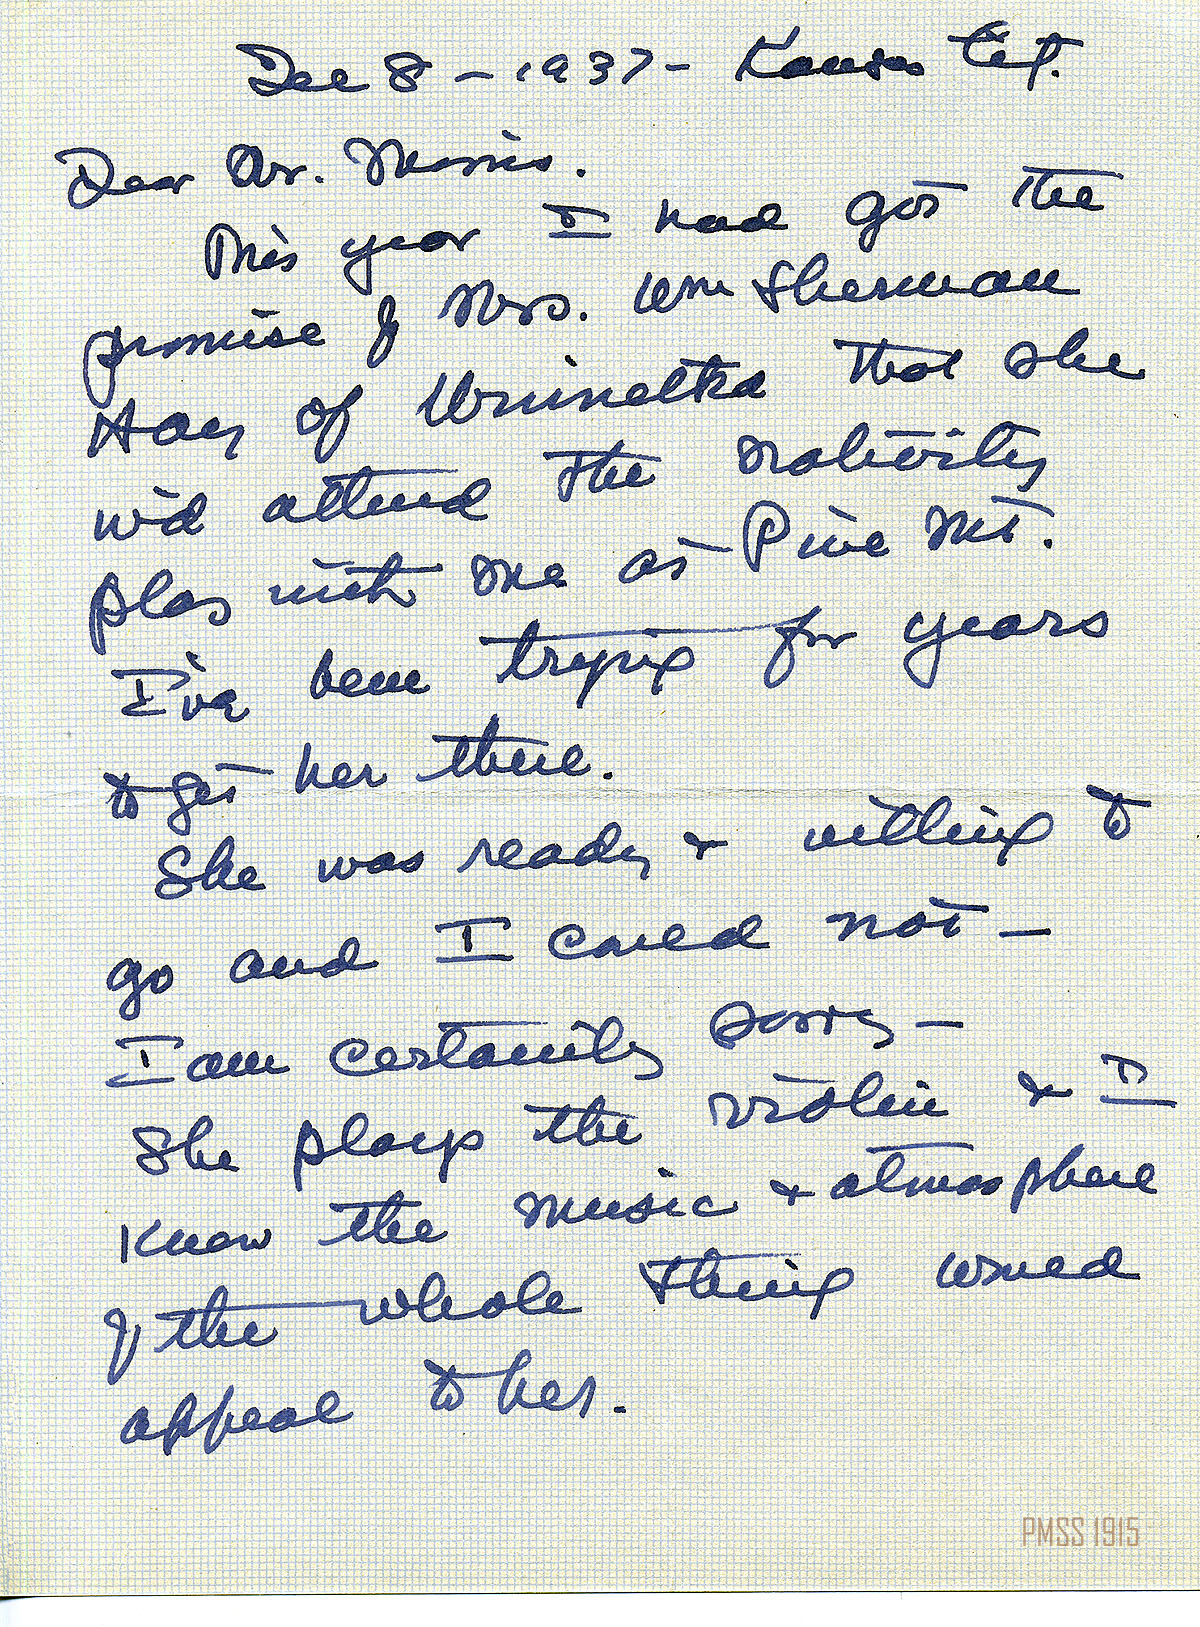 Dec 8 - 1937 - Kansas City.
Dear Mr. Morris.
This year I had got the
promise of Mrs. Wm Sherman
Hay of Winnetka that she
w'd attend the nativity
play with me at Pine Mt.
I've been trying for years
to get her there.
She was ready & willing to
go and I cared not -
I am certainly sorry -
She plays the violin & I
know the music & atmosphere
of the whole thing would
appeal to her.
PMSS 1915